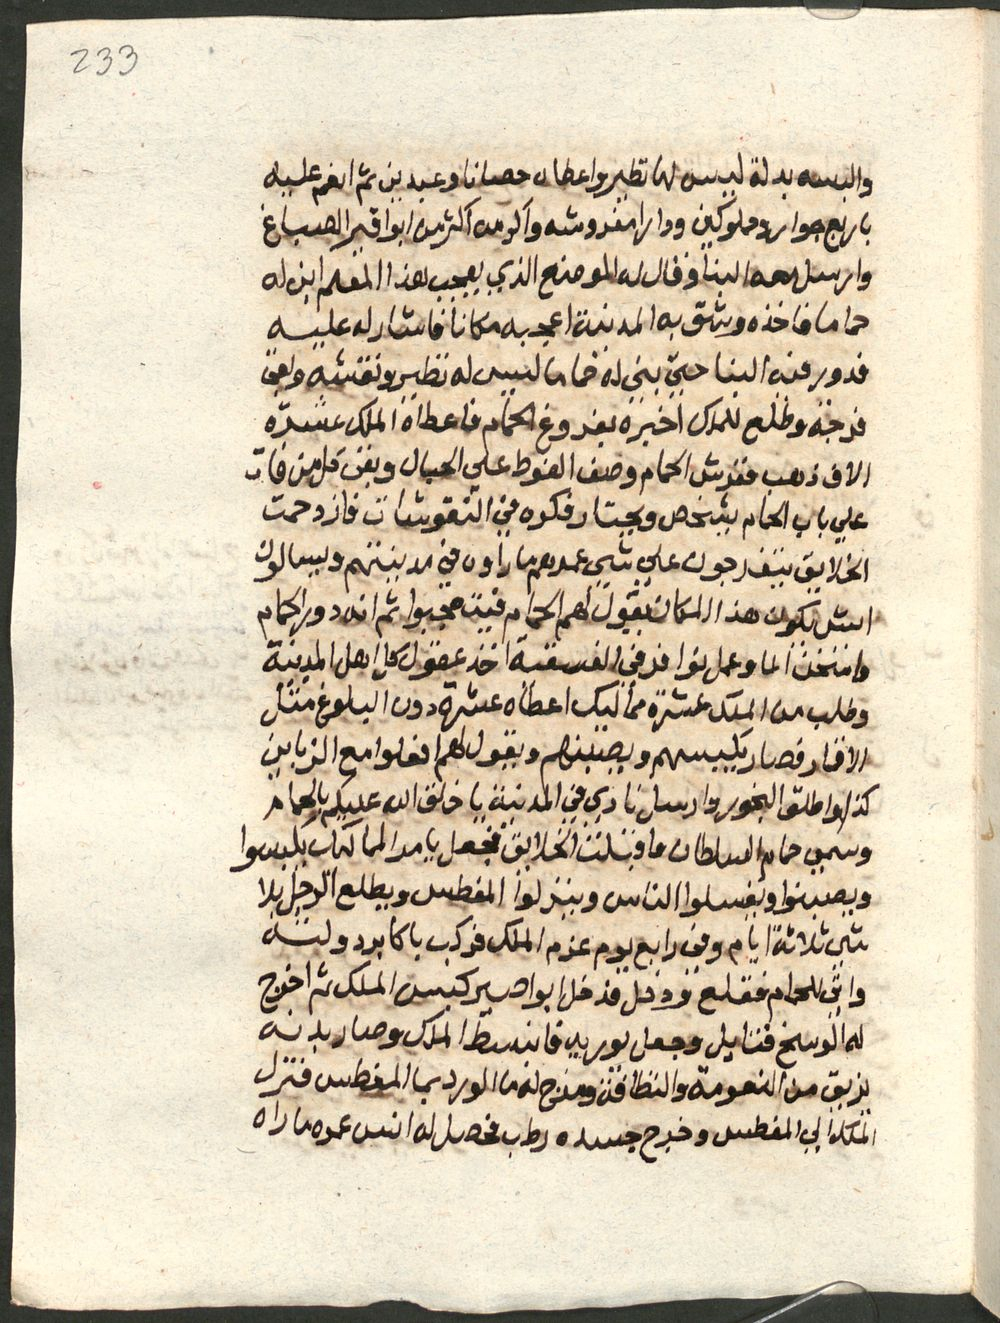 233
والبسه بدلة ليس لها نظير واعطاه حصانا وعبدين ثم انعم عليه
باربع جوار ومملوكين ودارا مفروشه واكرمه اكثر من ابوا قير الصباغ
وارسل معه البنا وقال له الموضع الذي يعجب هذا المعلم ابني له
حماما فاخذه وشق به المدينة اعجبه مكانا فاشار له عليه
فدور فيه البنا حتي بني له حماما ليس له نظير ونقشه وابقي
فرجه وطلع للملك اخبره بفروغ الحمام فاعطاه الملك عشرة
الاف ذهب ففرش الحمام وصف الفوط علي الحبال وبقي كل من فات
علي باب الحمام يشخص ويحتار فكره في النقوشات فازدحمت
الخلايق يتفرجون علي شي عمرهم ما راوه في مدينتهم ويسالون
ايش يكون هذا المكان يقول لهم الحمام فيتعجبوا ثم انه دور الحمام
وانسخن الما وعمل نوافر في الفسقية اخذ عقول كل اهل المدينة
وطلب من الملك عشرة مماليك اعطاه عشرة دون البلوغ مثل
الاقمار فصار يكبسهم ويصبنهم ويقول لهم افعلوا مع الزباين
كذا واطلق البخور وارسل نادي في المدينة يا خلق الله عليكم بالحمام
وسمي حمام السلطان فاقبلت الخلايق فجعل يامر المماليك يكبسوا
ويصبنوا ويغسلوا الناس وينزلوا المغطس ويطلع الرجل بلا
شي ثلاثة ايام وفي رابع يوم عزم الملك فركب باكابر دولته
واتي للحمام فقلع ودخل فدخل ابوا صير كبس الملك ثم اخرج
له الوسخ فتايل وجعل يوريه فانبسط الملك وصار بدنه
يزبق من النعومة والنظافة ومزج له ما الورد بما المغطس فنزل
الملك الي المغطس وخرج جسده رطب فحصل له انس عمره ما راه